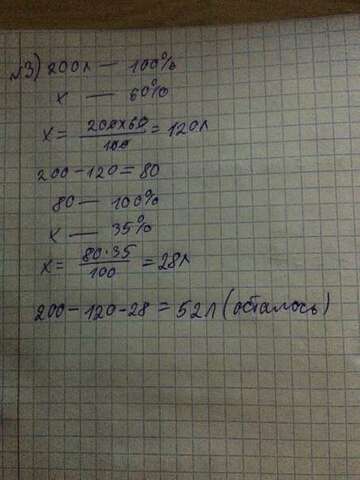 №3) 200л — 100%
х — 60%
х = 200х60/100 = 120л
200 - 120 = 80
80 — 100%
х — 35%
х = 80·35/100 = 28л
200 - 120 - 28 = 52л (осталось)